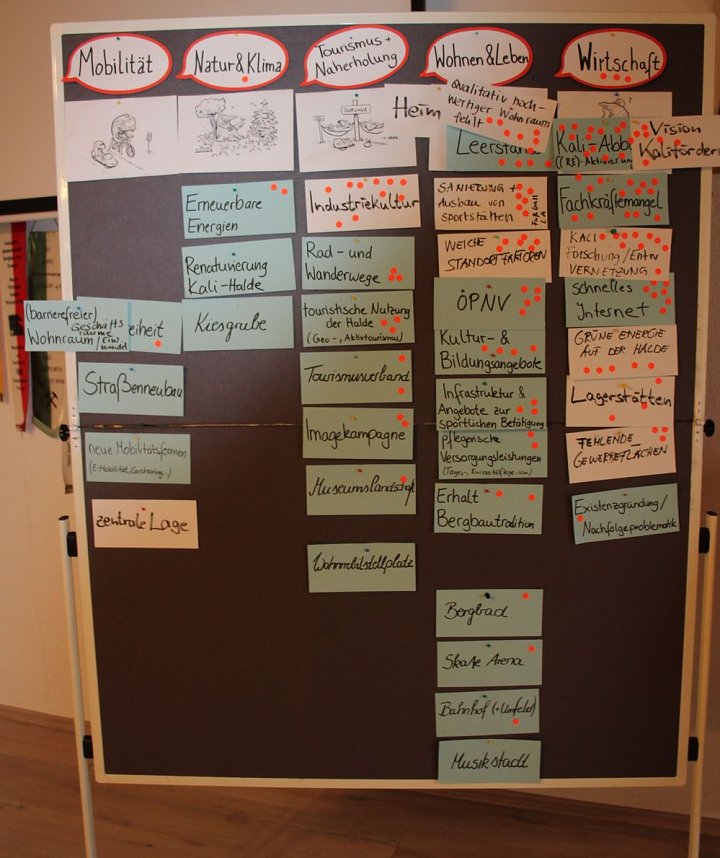 Mobilität
(barrierefreier)
Geschäfts
räume
Wohnraum
eiheit
Straßenneubau
neue Mobilitätsformen
(E-Mobilität, Carsharing...)
zentrale Lage
Natur & Klima
Erneuerbare
Energien
Renaturierung
Kali-Halde
Kiesgrube
Tourismus +
Naherholung
TOURISMUS
Heim
Industriekultur
Rad- und
Wanderwege
touristische Nutzung
der Halde
(Geo-, Aktivtourismus)
Tourismusverband
Imagekampagne
Museumslandschaft
Wohnmobilstellplatz
Wohnen & Leben
Qualitativ hoch-
wertiger Wohnraum
fehlt
Leerstand
SANIERUNG +
Ausbau von
Sportstätten
FUßBALL
LA
WEICHE
STANDORTFAKTOREN
ÖPNV
Kultur- &
Bildungsangebote
Infrastruktur &
Angebote zur
sportlichen Betätigung
pflegerische
Versorgungsleistungen
(Tages-, Kurzzeitpflege usw.)
Erhalt
Bergbautradition
Bergbad
Skate Arena
Bahnhof (+Umfeld)
Musikstadt
Wirtschaft
Kali-Abba
(RE)-Aktivierun
Vision
Kaliförder
Fachkräftemangel
KALI
Forschung/Entw
VERNETZUNG
schnelles
Internet
GRÜNE ENERGIE
AUF DER HALDE
Lagerstätten
FEHLENDE
GEWERBEFLÄCHEN
Existenzgründung/
Nachfolgeproblematik